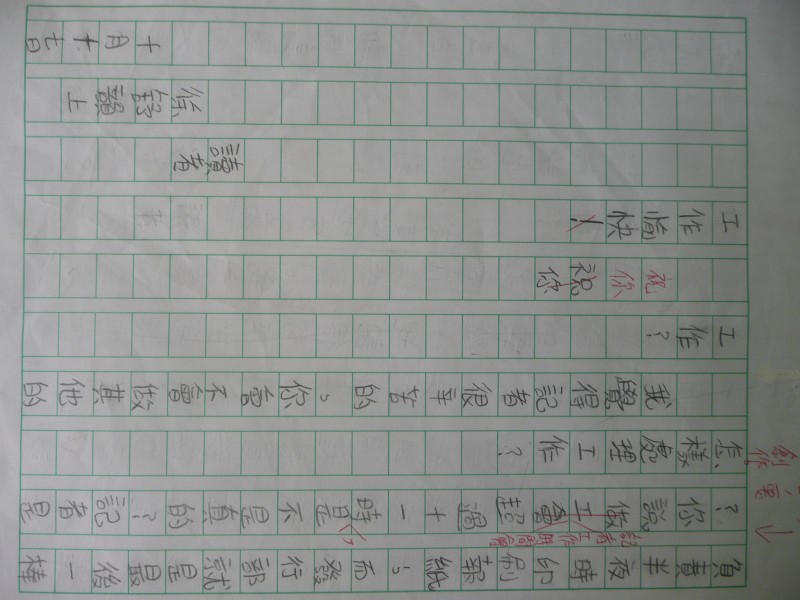 負責半夜時印刷報紙,而發行部就是最後一棒
?你說做工會超過十一時是不是真的?記者是
記者工作時間會
怎樣處理工作?
我覺得記者很辛苦的,你會不會做其他的
工作?
祝你
祝你
工作愉快!
讀者
徐 韻上
十月十七日